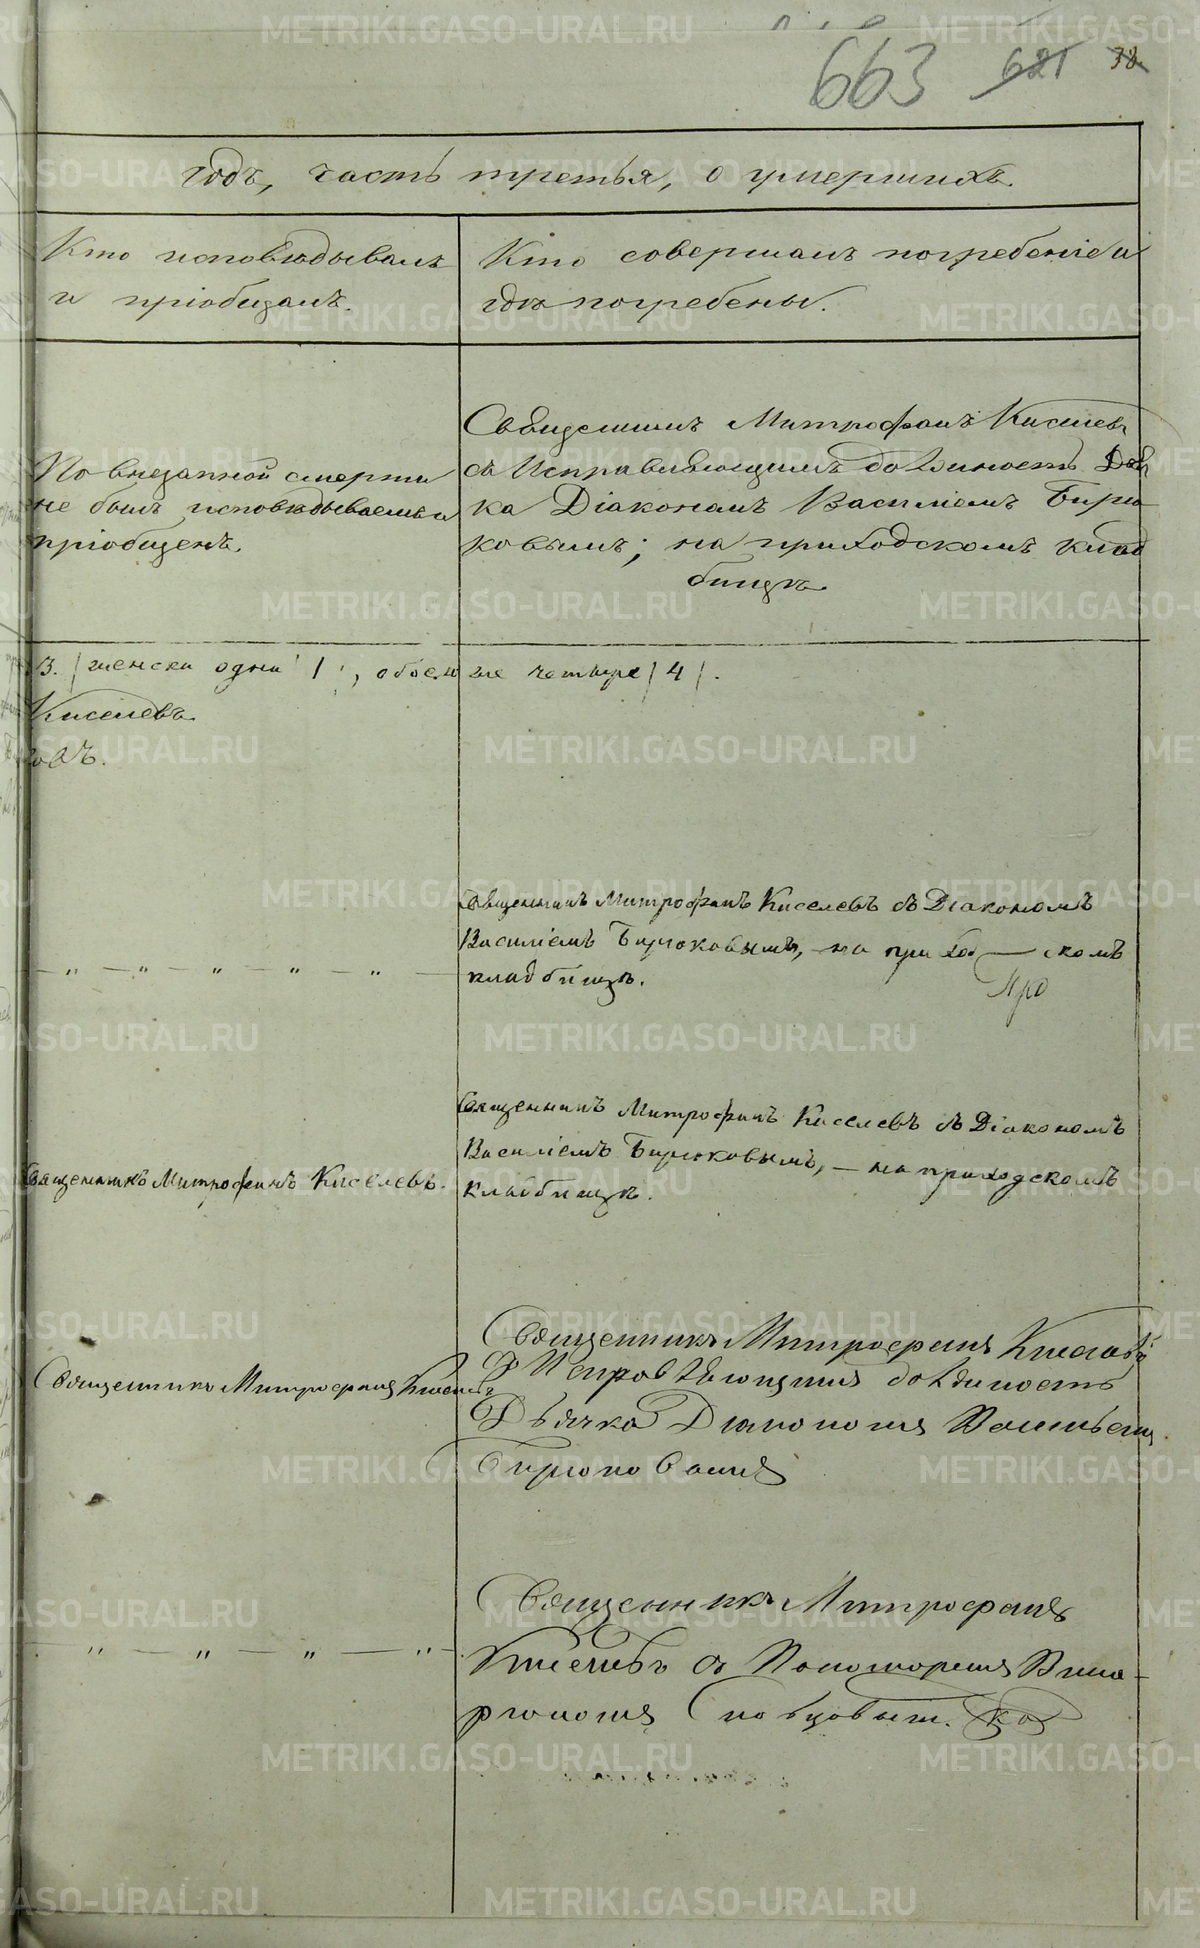 663 621 38
годъ, часть третья, о умершихъ.
Кто исповѣдывалъ
и пріобщалъ.
Кто совершалъ погребеніе и
гдѣ погребены.
По внезапной смерти
не былъ исповѣдываемъ и
пріобщенъ.
Священникъ Митрофанъ Киселевъ
съ Исправляющимъ должность Дьяч
ка Діакономъ Василіемъ Бирю
ковымъ; на приходскомъ клад
бищѣ.
3. / женска одна 1, обоего же четыре / 4 /.
Киселевъ
METRIKI.GASO-URAL.RU
Священникъ Митрофанъ Киселевъ съ Діакономъ
Василіемъ Бирюковымъ, – на приход — скомъ
кладбищѣ.
— „ — „ — „ — „ — „ —
Священникъ Митрофанъ Киселевъ.
Священникъ Митрофанъ Киселевъ съ Діакономъ
Василіемъ Бирюковымъ, – на приходскомъ
кладбищѣ.
Священникъ Митрофанъ Киселевъ
Священникъ Митрофанъ Киселевъ
съ Исправляющимъ должность
Дьячка Діакономъ Василіемъ
Бирюковымъ
— „ — „ — „ — „ —
Священникъ Митрофанъ
Киселевъ съ Пономаремъ